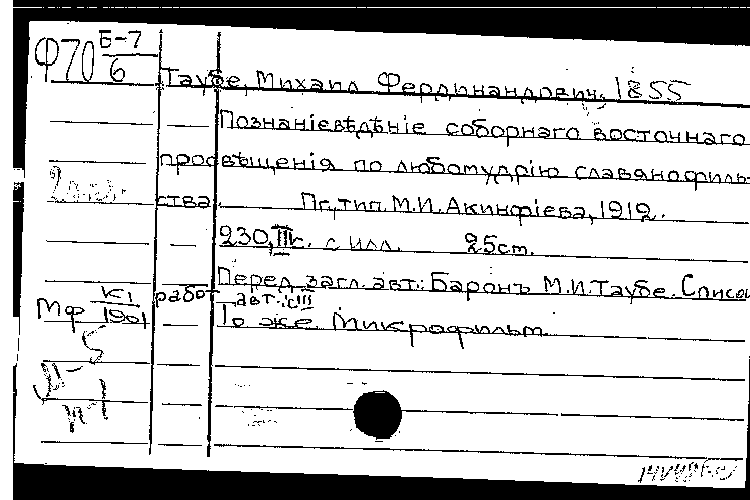 Ф70 Б-7
6
Таубе, Михаил Фердинандович. 1855
Познаніевѣдѣніе соборнаго восточнаго
просвѣщенія по любомудрію славянофиль-
ства. Пг, тип. М.И. Акинфіева, 1912.
230, III с. с илл. 25см.
Перед загл. авт.: Баронъ М.И. Таубе. Список
работ авт.: с III
Мф К1
1901
То же. Микрофильм.
М-5